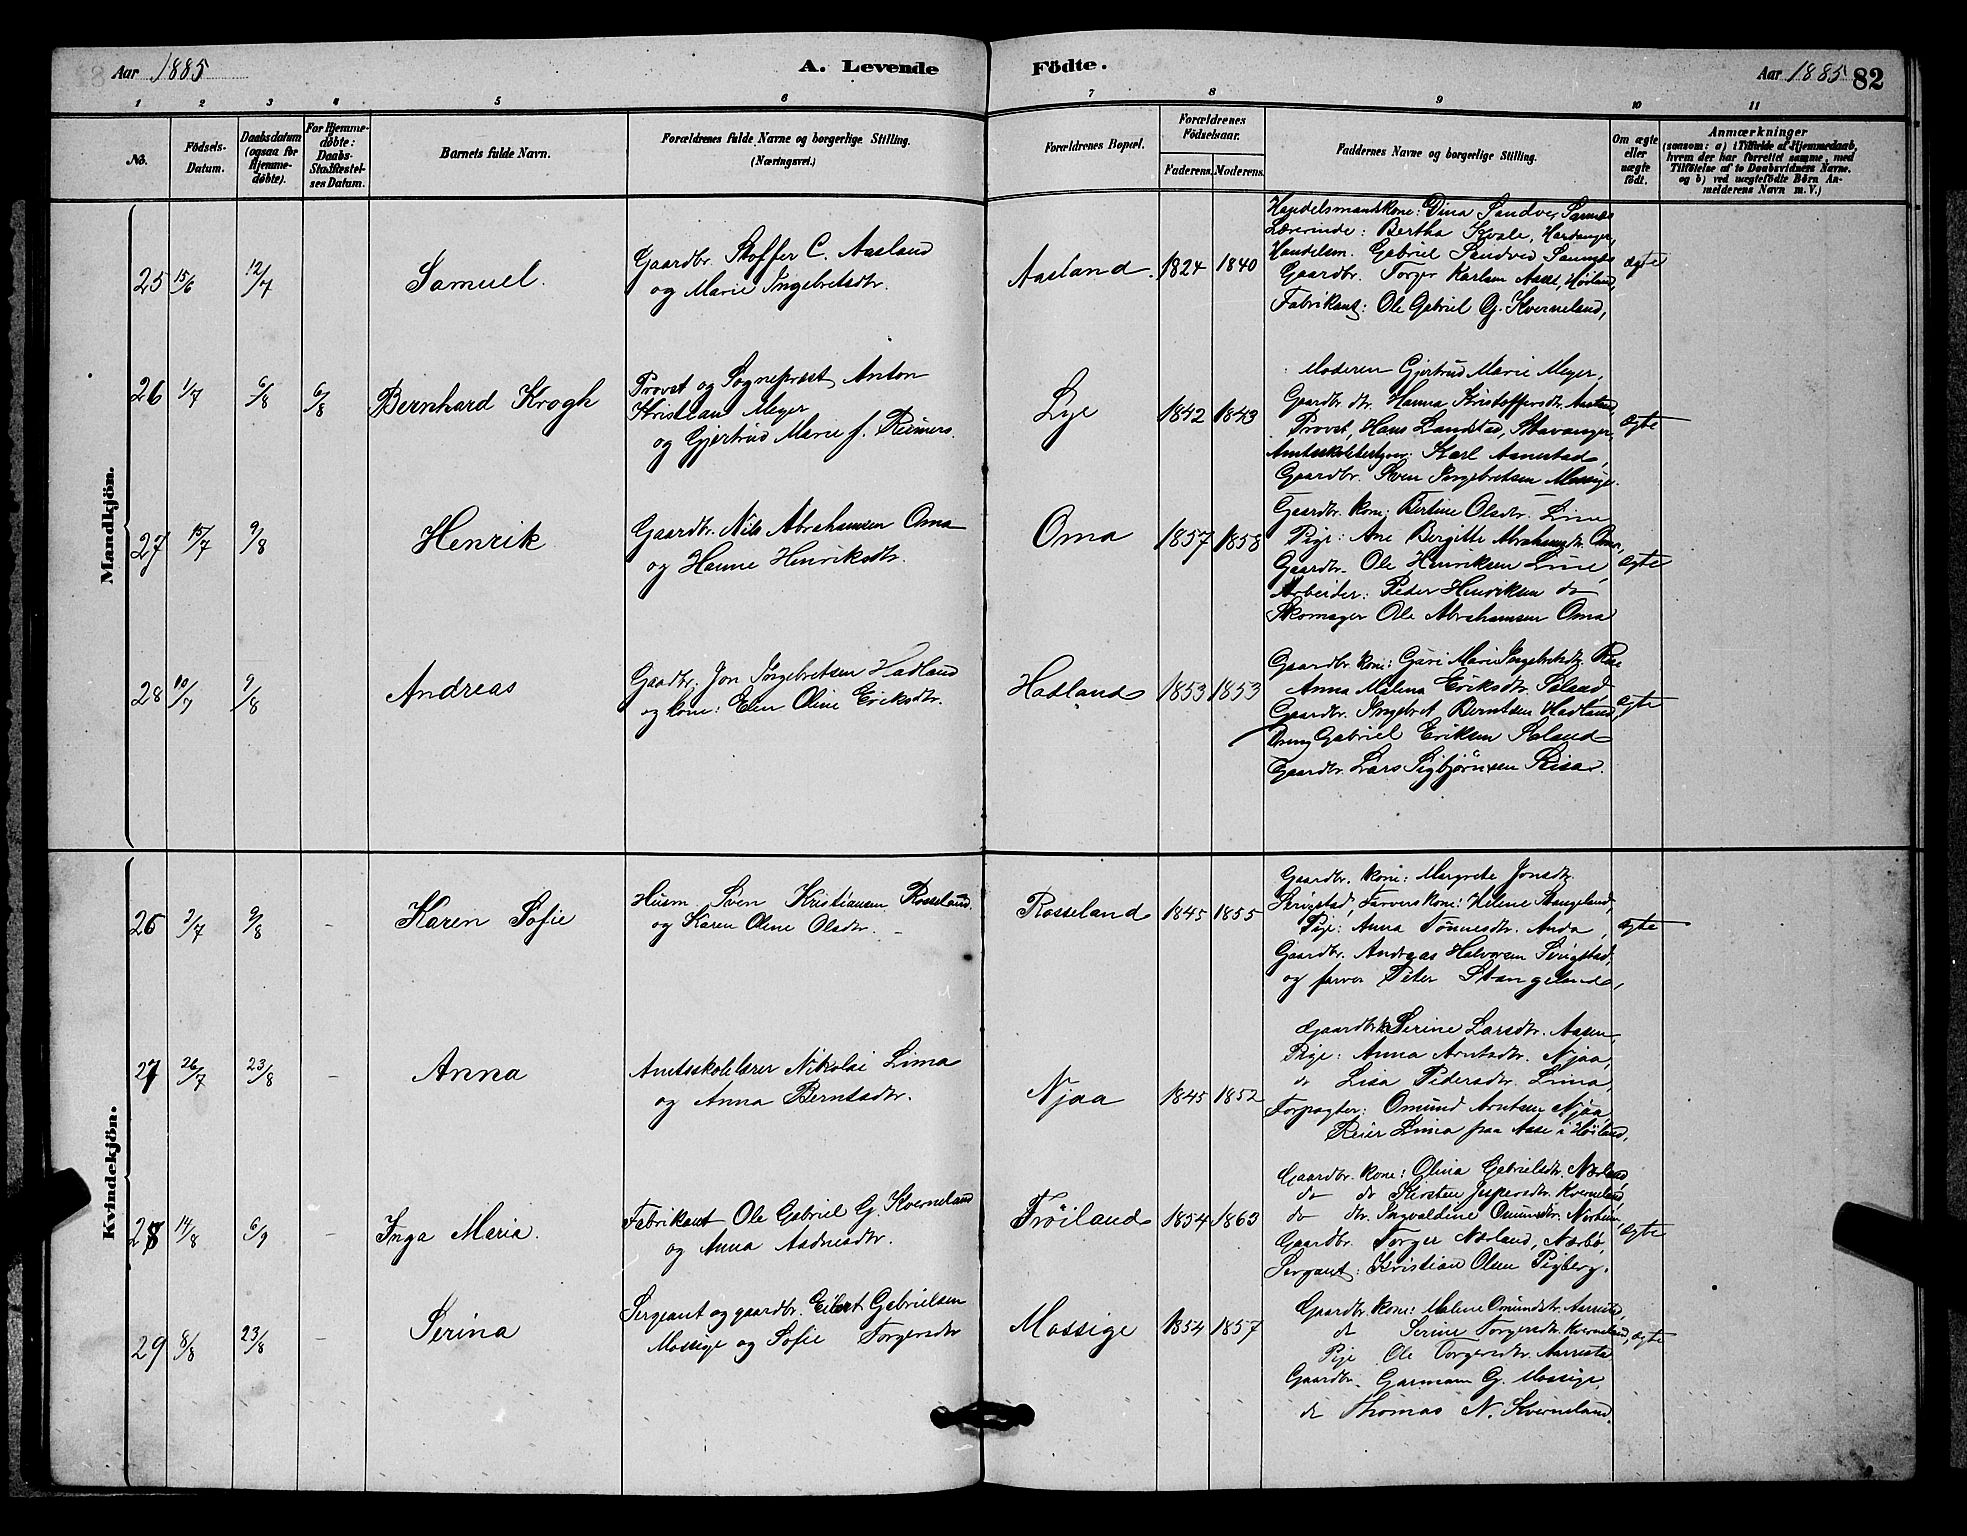 Aar 1885
A. Levende
Födte.
Aar 1885
82
1 2 3 4 5 6 7 8 9 10 11
No.
Födsels-Datum.
Daabsdatum (ogsaa for Hjemmedöbte).
For Hjemmedöbte: Daabs-Stadfæstelses Datum.
Barnets fulde Navn.
Forældrenes fulde Navne og borgerlige Stilling.
(Næringsvei.)
Forældrenes Bopæl.
Forældrenes Födselsaar.
Faderens. Moderens.
Faddernes Navne og borgerlige Stilling.
Om ægte eller uægte födt.
Anmærkninger
(saasom: a) i Tilfælde af Hjemmedaab,
hvem der har forrettet samme, med
Tilföielse af to Daabsvidners Navne.
og b) ved uægtefödte Börn An-
melderens Navn m. V.)
Mandkjön.
25 15/6 12/7 Samuel.
Gaardbr. Stoffer C. Aasland
og Marie Ingebretsdtr.
Aasland. 1824 1840
Handelsmandskone: Dina Sandved Sannæs
Lærerinde: Bertha Kvale, Hardanger,
Handelsm. Gabriel Sandved Sannæs
Gaardbr. Torger Karlsen Aase, Høiland,
Fabrikant: Ole Gabriel G. Kverneland,
ægte
26 1/7 6/8 6/8 Bernhard Krogh
Provst og Sognepræst Anton
Kristian Meyer
og Gjertrud Marie f. Reimers.
Lye 1842 1843
Moderen Gjertrud Marie Meyer,
Gaardbr. dtr. Hanna Kristoffersdtr.
Provst, Hans Landstad, Stavanger,
Amtsskolebestyrer: Karl Aanestad,
Gaardbr. Sven Ingebretsen Mossige.
ægte
27 15/7 9/8 Henrik
Gaardbr. Nils Abrahamsen Oma
og Hanne Henriksdtr.
Oma 1857 1858
Gaardbr. kone: Bertine Olsdtr. Lime
Pige: Ane Birgitte Abrahamsdtr. Oma,
Gaardbr. Ole Henriksen Lime,
Arbeider: Peder Henriksen do
Skomager Ole Abrahamsen Oma
ægte
28 10/7 9/8 Andreas
Gaardbr. Jon Ingebretsen Hadland
og kone: Elen Oline Eriksdtr.
Hadland 1853 1853
Gaardbr. kone: Guri Marie Ingebretsdtr.
Anna Malena Eriksdtr. Søland
Gaardbr. Ingebret Berntsen Hadland,
Dreng Gabriel Eriksen Søland
Gaardbr. Lars Sigbjørnsen Risa.
ægte
Kvindekjön.
26 3/7 9/8 - Karen Sofie
Husm. Sven Kristiansen Rosseland
og Karen Oline Olsdtr. -
Rosseland 1845 1855
Gaardbr. kone: Margrete Jonsdtr.
Serigstad, Farverskone: Helene Stangeland,
Pige: Anna Tønnesdtr. Anda,
Gaardbr. Andreas Halvorsen Serigstad,
og farver Peter Stangeland,
ægte
27 26/7 23/8 - Anna
Amtsskolelærer Nikolai Lima
og Anna Berntsdtr.
Njaa 1845 1852
Gaardbr.k. Serine Larsdtr. Aasen
Pige: Anna Arntsdtr. Njaa,
do Lisa Pedersdtr. Lima,
Forpagter: Omund Arntsen Njaa,
Reier Lima paa Aase i Høiland.
28 14/8 6/9 - Inga Maria.
Fabrikant Ole Gabriel G. Kverneland
og Anna Aadnesdtr.
Frøiland 1854 1863
Gaardbr. kone: Olina Gabrielsdtr. Nærland
do do Kirsten Jespersdtr. Kverneland
do dtr. Ingvaldine Omundsdtr.
Gaardbr. Torger Nærland, Nærbø,
Sergant: Kristian Olsen Vigberg.
ægte
29 8/8 23/8 - Serina
Sergeant og gaardbr. Eilert Gabrielsen
Mossige og Sofie Torgersdtr
Mossige 1854 1857
Gaardbr. kone: Malene Omundsdtr. Aarrestad,
do Serine Torgersdtr. Kverneland,
Pige Ole Torgersdtr. Aarrestad
Gaardbr. Garmann G. Mossige,
do Thomas N. Kverneland.
ægte